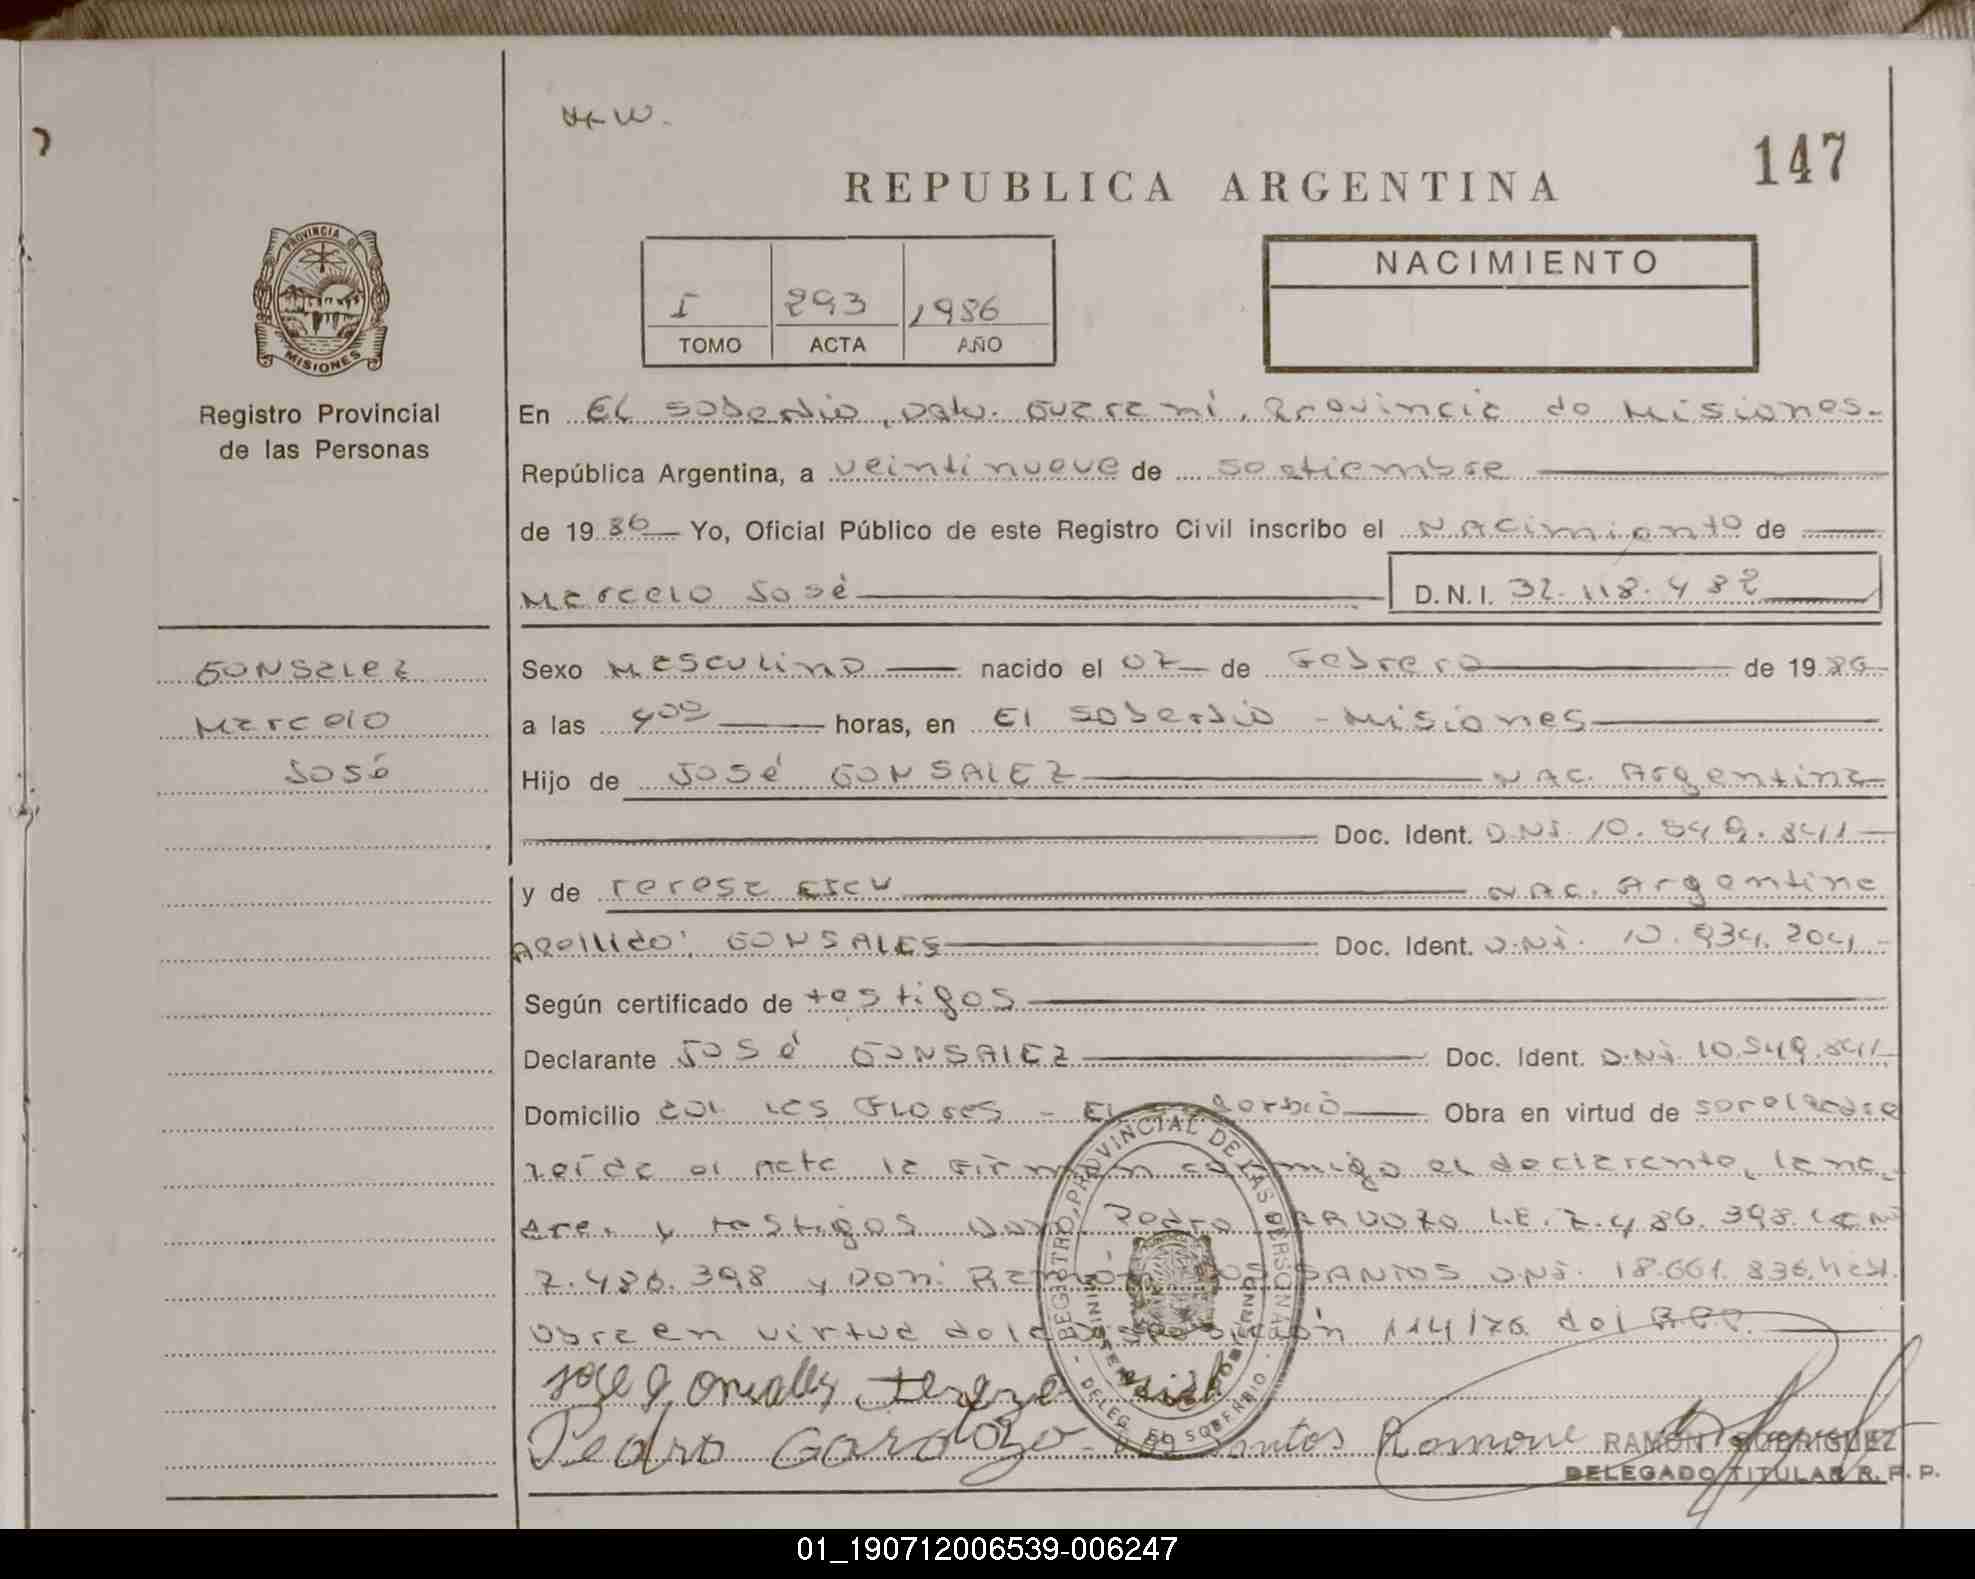 147
REPUBLICA ARGENTINA
PROVINCIA DE
MISIONES
Registro Provincial
de las Personas
I 293 1986
TOMO ACTA AÑO
NACIMIENTO
En El Soberbio, Dpto. Guaraní, Provincia de Misiones.
República Argentina, a veintinueve de septiembre
de 1986 Yo, Oficial Público de este Registro Civil inscribo el NAcimiento de
Marcelo José D.N.I. 32.118.432
GONSalez
Marcelo
José
Sexo Masculino nacido el 07 de Febrero de 1986
a las 400 horas, en El Soberbio - Misiones
Hijo de José GONSALEZ NAC. Argentina
Doc. Ident. D.NI. 10.549.841
y de Teresa NAC. Argentina
Apellido: GONSALES Doc. Ident. D.NI. 10.934.204
Según certificado de testigos
Declarante José GONSALEZ Doc. Ident. D.NI. 10.549.841
Domicilio Col. Las Flores - El Obra en virtud de ser el padre
Leída el Acta la firman conmigo el declarante, la ma-
dre. y testigos Don: Pedro L.E. 7.486.398.
7.486.398 y Don: Ramón DOS SANTOS DNI. 18.661.836.
Obra en virtud de la Disposición 114/76 del RPP.
Jose Gonzalez Tereza
Pedro Gardozo Santos Ramone
REGISTRO PROVINCIAL DE LAS PERSONAS
MINISTERIO DE GOBIERNO
DELEG. EL SOBERBIO
RAMON RODRIGUEZ
DELEGADO TITULAR R. P. P.
01_190712006539-006247